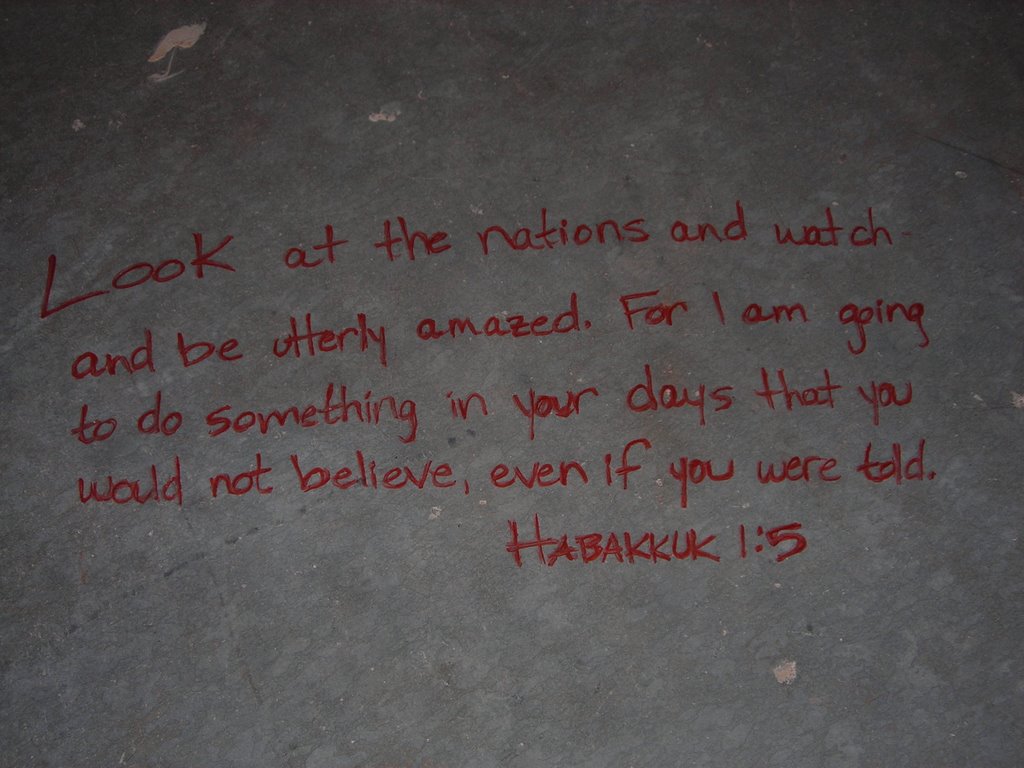 Look at the nations and watch -
and be utterly amazed. For I am going
to do something in your days that you
would not believe, even if you were told.
HABAKKUK 1:5